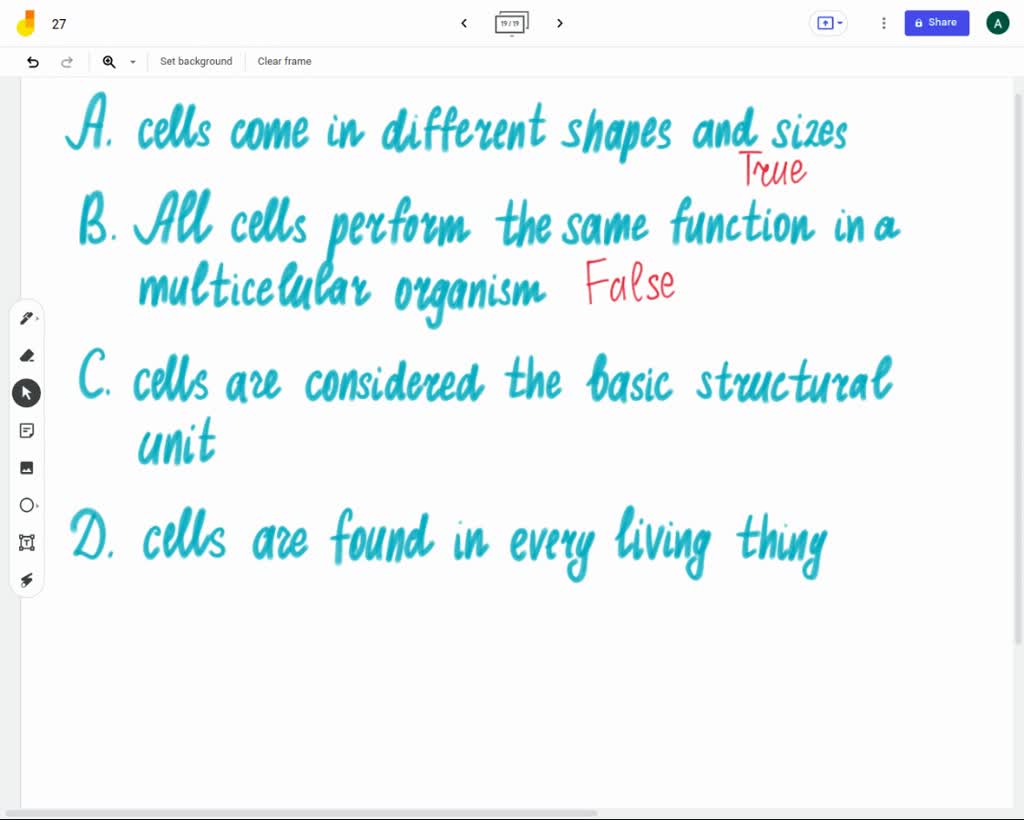 27
19/19
Share
A
Set background
Clear frame
A. cells come in different shapes and sizes
True
B. All cells perform the same function in a
multicelular organism False
C. cells are considered the basic structural
unit
D. cells are found in every living thing